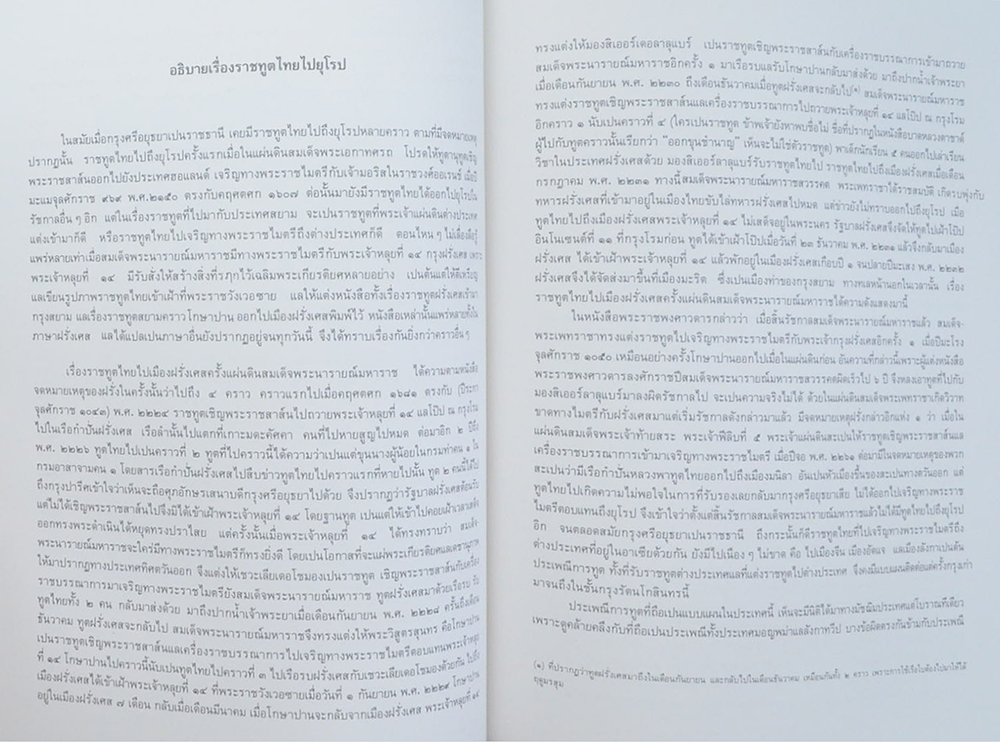 อธิบายเรื่องราชทูตไทยไปยุโรป
ในสมัยเมื่อกรุงศรีอยุธยาเปนราชธานี เคยมีราชทูตไทยไปถึงยุโรปหลายคราว ตามที่มีจดหมายเหตุ
ปรากฏนั้น ราชทูตไทยไปถึงยุโรปครั้งแรกเมื่อในแผ่นดินสมเด็จพระเอกาทศรถ โปรดให้ทูตานุทูตเชิญ
พระราชสาส์นออกไปยังประเทศฮอลแลนด์ เจริญทางพระราชไมตรีกับเจ้ามอริสในราชวงศ์ออเรนช์ เมื่อปี
มะแมจุลศักราช ๙๖๙ พ.ศ.๒๑๕๐ ตรงกับคฤศตศก ๑๖๐๗ ต่อนั้นมายังมีราชทูตไทยได้ออกไปยุโรปใน
รัชกาลอื่นๆ อีก แต่ในเรื่องราชทูตที่ไปมากับประเทศสยาม จะเปนราชทูตที่พระเจ้าแผ่นดินต่างประเทศ
แต่งเข้ามาก็ดี หรือราชทูตไทยไปเจริญทางพระราชไมตรีถึงต่างประเทศก็ดี ตอนไหนๆ ไม่เลื่องลือรู้
แพร่หลายเท่าเมื่อสมเด็จพระนารายณ์มหาราชมีทางพระราชไมตรีกับพระเจ้าหลุยที่ ๑๔ กรุงฝรั่งเศส เพราะ
พระเจ้าหลุยที่ ๑๔ มีรับสั่งให้สร้างสิ่งที่รฦกไว้เฉลิมพระเกียรติยศหลายอย่าง เปนต้นแต่ให้ตีเหรียญ
แลเขียนรูปภาพราชทูตไทยเข้าเฝ้าที่พระราชวังเวอซาย แลให้แต่งหนังสือทั้งเรื่องราชทูตฝรั่งเศสเข้ามา
กรุงสยาม แลเรื่องราชทูตสยามคราวโกษาปาน ออกไปเมืองฝรั่งเศสพิมพ์ไว้ หนังสือเหล่านั้นแพร่หลายทั้งใน
ภาษาฝรั่งเศส แลได้แปลเปนภาษาอื่นยังปรากฏอยู่จนทุกวันนี้ จึงได้ทราบเรื่องกันยิ่งกว่าคราวอื่นๆ
เรื่องราชทูตไทยไปเมืองฝรั่งเศสครั้งแผ่นดินสมเด็จพระนารายณ์มหาราช ได้ความตามหนังสือ
จดหมายเหตุของฝรั่งในครั้งนั้นว่าไปถึง ๔ คราว คราวแรกไปเมื่อคฤศตศก ๑๖๘๑ ตรงกับ (ปีระกา
จุลศักราช ๑๐๔๓) พ.ศ. ๒๒๒๔ ราชทูตเชิญพระราชสาส์นไปถวายพระเจ้าหลุยที่ ๑๔ แลโป๊ป ณ กรุงโรม
ไปในเรือกำปั่นฝรั่งเศส เรือลำนั้นไปแตกที่เกาะมะดัคศคา คนที่ไปหายสูญไปหมด ต่อมาอิก ๒ ปีถึง
พ.ศ. ๒๒๒๖ ทูตไทยไปเปนคราวที่ ๒ ทูตที่ไปคราวนี้ได้ความว่าเปนแต่ขุนนางผู้น้อยในกรมท่าคน ๑ ใน
กรมอาสาจามคน ๑ โดยสารเรือกำปั่นฝรั่งเศสไปสืบข่าวทูตไทยไปคราวแรกที่หายไปนั้น ทูต ๒ คนนี้ได้ไป
ถึงกรุงปารีศเข้าใจว่าเห็นจะถือศุภอักษรเสนาบดีกรุงศรีอยุธยาไปด้วย จึงปรากฏว่ารัฐบาลฝรั่งเศสต้อนรับ
แต่ไม่ได้เชิญพระราชสาส์นไปจึงมิได้เข้าเฝ้าพระเจ้าหลุยที่ ๑๔ โดยฐานทูต เปนแต่ให้ไปคอยเฝ้าเวลาเสด็จ
ออกทรงพระดำเนินได้หยุดทรงปราไสย แต่ครั้งนั้นเมื่อพระเจ้าหลุยที่ ๑๔ ได้ทรงทราบว่า สมเด็จ
พระนารายณ์มหาราชจะใคร่มีทางพระราชไมตรีก็ทรงยิ่งดี โดยเปนโอกาสที่จะแผ่พระเกียรติยศแลเดชานุภาพ
ให้มาปรากฏทางประเทศทิศตวันออก จึงแต่งให้เชวะเลียเดอโชมองเปนราชทูต เชิญพระราชสาส์นกับเครื่อง
ราชบรรณาการมาเจริญทางพระราชไมตรียังสมเด็จพระนารายณ์มหาราช ทูตฝรั่งเศสมาด้วยเรือรบ รับ
ทูตไทยทั้ง ๒ คน กลับมาส่งด้วย มาถึงปากน้ำเจ้าพระยาเมื่อเดือนกันยายน พ.ศ. ๒๒๒๘ ครั้นถึงเดือน
ธันวาคม ทูตฝรั่งเศสจะกลับไป สมเด็จพระนารายณ์มหาราชจึงทรงแต่งให้พระวิสูตรสุนทร คือโกษาปาน
เปนราชทูตเชิญพระราชสาส์นแลเครื่องราชบรรณาการไปเจริญทางพระราชไมตรีตอบแทนพระเจ้าหลุย
ที่ ๑๔ โกษาปานไปคราวนี้นับเปนทูตไทยไปคราวที่ ๓ ไปเรือรบฝรั่งเศสกับเชวะเลียเดอโชมองด้วยกัน ไปถึง
เมืองฝรั่งเศสได้เข้าเฝ้าพระเจ้าหลุยที่ ๑๔ ที่พระราชวังเวอซายเมื่อวันที่ ๑ กันยายน พ.ศ. ๒๒๒๙ โกษาปาน
อยู่ในเมืองฝรั่งเศส ๗ เดือน กลับเมื่อเดือนมีนาคม เมื่อโกษาปานจะกลับจากเมืองฝรั่งเศส พระเจ้าหลุยที่ ๑๔
ทรงแต่งให้มองสิเออร์เดอลาลุแบร์ เปนราชทูตเชิญพระราชสาส์นกับเครื่องราชบรรณาการเข้ามาถวาย
สมเด็จพระนารายณ์มหาราชอิกครั้ง ๑ มาเรือรบแลรับโกษาปานกลับมาส่งด้วย มาถึงปากน้ำเจ้าพระยา
เมื่อเดือนกันยายน พ.ศ. ๒๒๓๐ ถึงเดือนธันวาคมเมื่อทูตฝรั่งเศสจะกลับไป(๑) สมเด็จพระนารายณ์มหาราช
ทรงแต่งราชทูตเชิญพระราชสาส์นแลเครื่องราชบรรณาการไปถวายพระเจ้าหลุยที่ ๑๔ แลโป๊ป ณ กรุงโรม
อิกคราว ๑ นับเปนคราวที่ ๔ (ใครเปนราชทูต ข้าพเจ้ายังหาพบชื่อไม่ ชื่อที่ปรากฏในหนังสือบาดหลวงตาชาด์
ผู้ไปกับทูตคราวนั้นเรียกว่า "ออกขุนชำนาญ" เห็นจะไม่ใช่ตัวราชทูต) พาเด็กนักเรียน ๕ คนออกไปเล่าเรียน
วิชาในประเทศฝรั่งเศสด้วย มองสิเออร์ลาลุแบร์รับราชทูตไทยไป ราชทูตไทยไปถึงเมืองฝรั่งเศสเมื่อเดือน
กรกฎาคม พ.ศ. ๒๒๓๑ ทางนี้สมเด็จพระนารายณ์มหาราชสวรรคต พระเพทราชาได้ราชสมบัติ เกิดรบพุ่งกับ
ทหารฝรั่งเศสที่เข้ามาอยู่ในเมืองไทยขับไล่ทหารฝรั่งเศสไปหมด แต่ข่าวยังไม่ทราบออกไปถึงยุโรป เมื่อ
ทูตไทยไปถึงเมืองฝรั่งเศสพระเจ้าหลุยที่ ๑๔ ไม่เสด็จอยู่ในพระนคร รัฐบาลฝรั่งเศสจึงจัดให้ทูตไปเฝ้าโป๊ป
อินโนเซนต์ที่ ๑๑ ที่กรุงโรมก่อน ทูตได้เข้าเฝ้าโป๊ปเมื่อวันที่ ๒๓ ธันวาคม พ.ศ. ๒๒๓๑ แล้วจึงกลับมาเมือง
ฝรั่งเศส ได้เข้าเฝ้าพระเจ้าหลุยที่ ๑๔ แล้วพักอยู่ในเมืองฝรั่งเศสเกือบปี ๑ จนปลายปีมะเสง พ.ศ. ๒๒๓๒
ฝรั่งเศสจึงได้จัดส่งมาขึ้นที่เมืองมะริด ซึ่งเปนเมืองท่าของกรุงสยาม ทางทเลหน้านอกในเวลานั้น เรื่อง
ราชทูตไทยไปเมืองฝรั่งเศสครั้งแผ่นดินสมเด็จพระนารายณ์มหาราชได้ความดังแสดงมานี้
ในหนังสือพระราชพงศาวดารกล่าวว่า เมื่อสิ้นรัชกาลสมเด็จพระนารายณ์มหาราชแล้ว สมเด็จ-
พระเพทราชาทรงแต่งราชทูตไปเจริญทางพระราชไมตรีกับพระเจ้ากรุงฝรั่งเศสอิกครั้ง ๑ เมื่อปีมะโรง
จุลศักราช ๑๐๕๐ เหมือนอย่างครั้งโกษาปานออกไปเมื่อในแผ่นดินก่อน อันความที่กล่าวนี้เพราะผู้แต่งหนังสือ
พระราชพงศาวดารลงศักราชปีสมเด็จพระนารายณ์มหาราชสวรรคตผิดเร็วไป ๖ ปี จึงหลงเอาทูตที่ไปกับ
มองสิเออร์ลาลุแบร์มาลงผิดรัชกาลไป จะเปนความจริงไม่ได้ ด้วยในแผ่นดินสมเด็จพระเพทราชาเกิดวิวาท
ขาดทางไมตรีกับฝรั่งเศสมาแต่เริ่มรัชกาลดังกล่าวมาแล้ว มีจดหมายเหตุฝรั่งกล่าวอิกแห่ง ๑ ว่า เมื่อใน
แผ่นดินสมเด็จพระเจ้าท้ายสระ พระเจ้าฟิลิบที่ ๕ พระเจ้าแผ่นดินสเปนให้ราชทูตเชิญพระราชสาส์นแล
เครื่องราชบรรณาการเข้ามาเจริญทางพระราชไมตรี เมื่อปีจอ พ.ศ. ๒๒๖๑ ต่อมามีในจดหมายเหตุของพวก
สเปนว่ามีเรือกำปั่นหลวงพาทูตไทยออกไปถึงเมืองมนิลา อันเปนหัวเมืองขึ้นของสเปนทางตวันออก แต่
ทูตไทยไปเกิดความไม่พอใจในการที่รับรองเลยกลับมากรุงศรีอยุธยาเสีย ไม่ได้ออกไปเจริญทางพระราช
ไมตรีตอบแทนถึงยุโรป จึงเข้าใจว่าตั้งแต่สิ้นรัชกาลสมเด็จพระนารายณ์มหาราชแล้วไม่ได้มีทูตไทยไปถึงยุโรป
อิก จนตลอดสมัยกรุงศรีอยุธยาเปนราชธานี ถึงกระนั้นก็ดีราชทูตไทยที่ไปเจริญทางพระราชไมตรีถึง
ต่างประเทศที่อยู่ในอาเซียด้วยกัน ยังมีไปเนืองๆ ไม่ขาด คือ ไปเมืองจีน เมืองอัดแจ แลเมืองลังกาเปนต้น
ประเพณีการทูต ทั้งที่รับราชทูตต่างประเทศแลที่แต่งราชทูตไปต่างประเทศ จึงคงมีแบบแผนติดต่อแต่ครั้งกรุงเก่า
มาจนถึงในชั้นกรุงรัตนโกสินทรนี้
ประเพณีการทูตที่ถือเปนแบบแผนในประเทศนี้ เห็นจะมีนิติได้มาทางมัชฌิมประเทศแต่โบราณทีเดียว
เพราะดูคล้ายคลึงกับที่ถือเปนประเพณีทั้งประเทศมอญพม่าแลลังกาทวีป บางข้อผิดตรงกันข้ามกับประเพณี
(๑) ที่ปรากฏว่าทูตฝรั่งเศสมาถึงในเดือนกันยายน และกลับไปในเดือนธันวาคม เหมือนกันทั้ง ๒ คราว เพราะการใช้เรือใบต้องไปมาให้ได้
ฤดูมรสุม